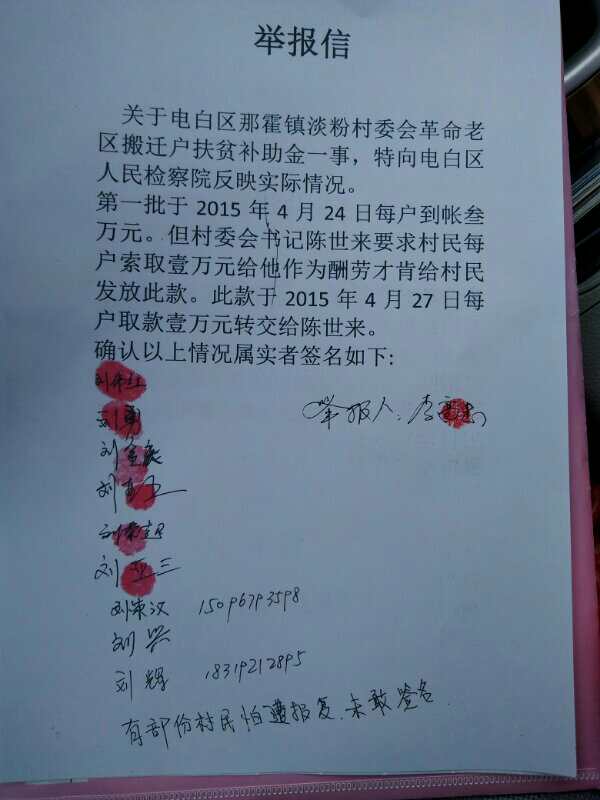 举报信
关于电白区那霍镇淡粉村委会革命老
区搬迁户扶贫补助金一事，特向电白区
人民检察院反映实际情况。
第一批于 2015 年 4 月 24 日每户到帐叁
万元。但村委会书记陈世来要求村民每
户索取壹万元给他作为酬劳才肯给村民
发放此款。此款于 2015 年 4 月 27 日每
户取款壹万元转交给陈世来。
确认以上情况属实者签名如下:
举报人：李
刘
刘勇
刘金
刘
刘
刘亚三
刘东汉 15096793598
刘兴
刘辉 18319212895
有部份村民怕遭报复、未敢签名.